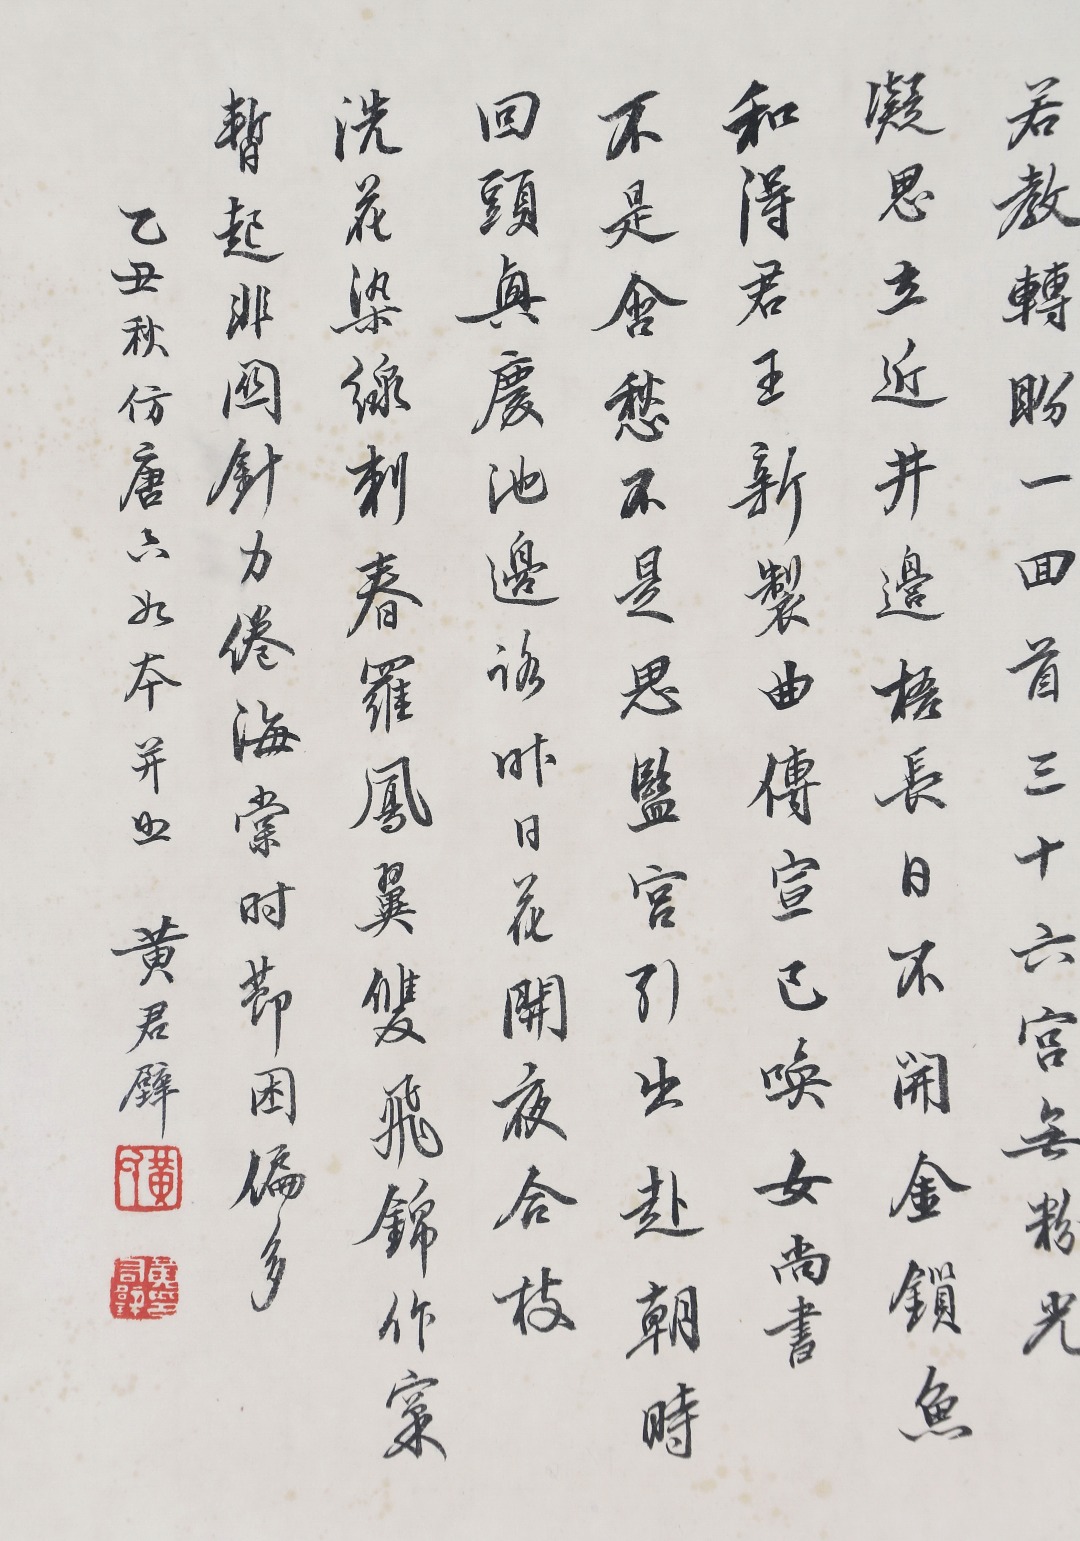 若教轉盼一回首三十六宮無粉光
凝思立近井邊梧長日不開金鎖魚
和得君王新製曲傳宣已喚女尚書
不是含愁不是思監宮引出赴朝時
回頭真慶池邊路昨日花開夜合枝
洗花染線刺春羅鳳翼雙飛錦作窠
暫起非関針力倦海棠时節困偏多
乙丑秋仿唐六如本并出
黃君璧